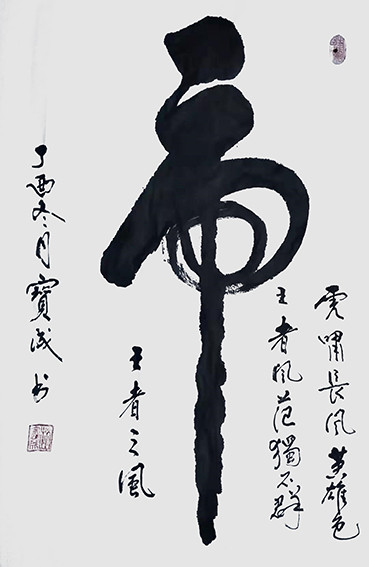 虎
虎啸長風英雄色
王者風范獨不群
王者之風
丁酉冬月寶成书